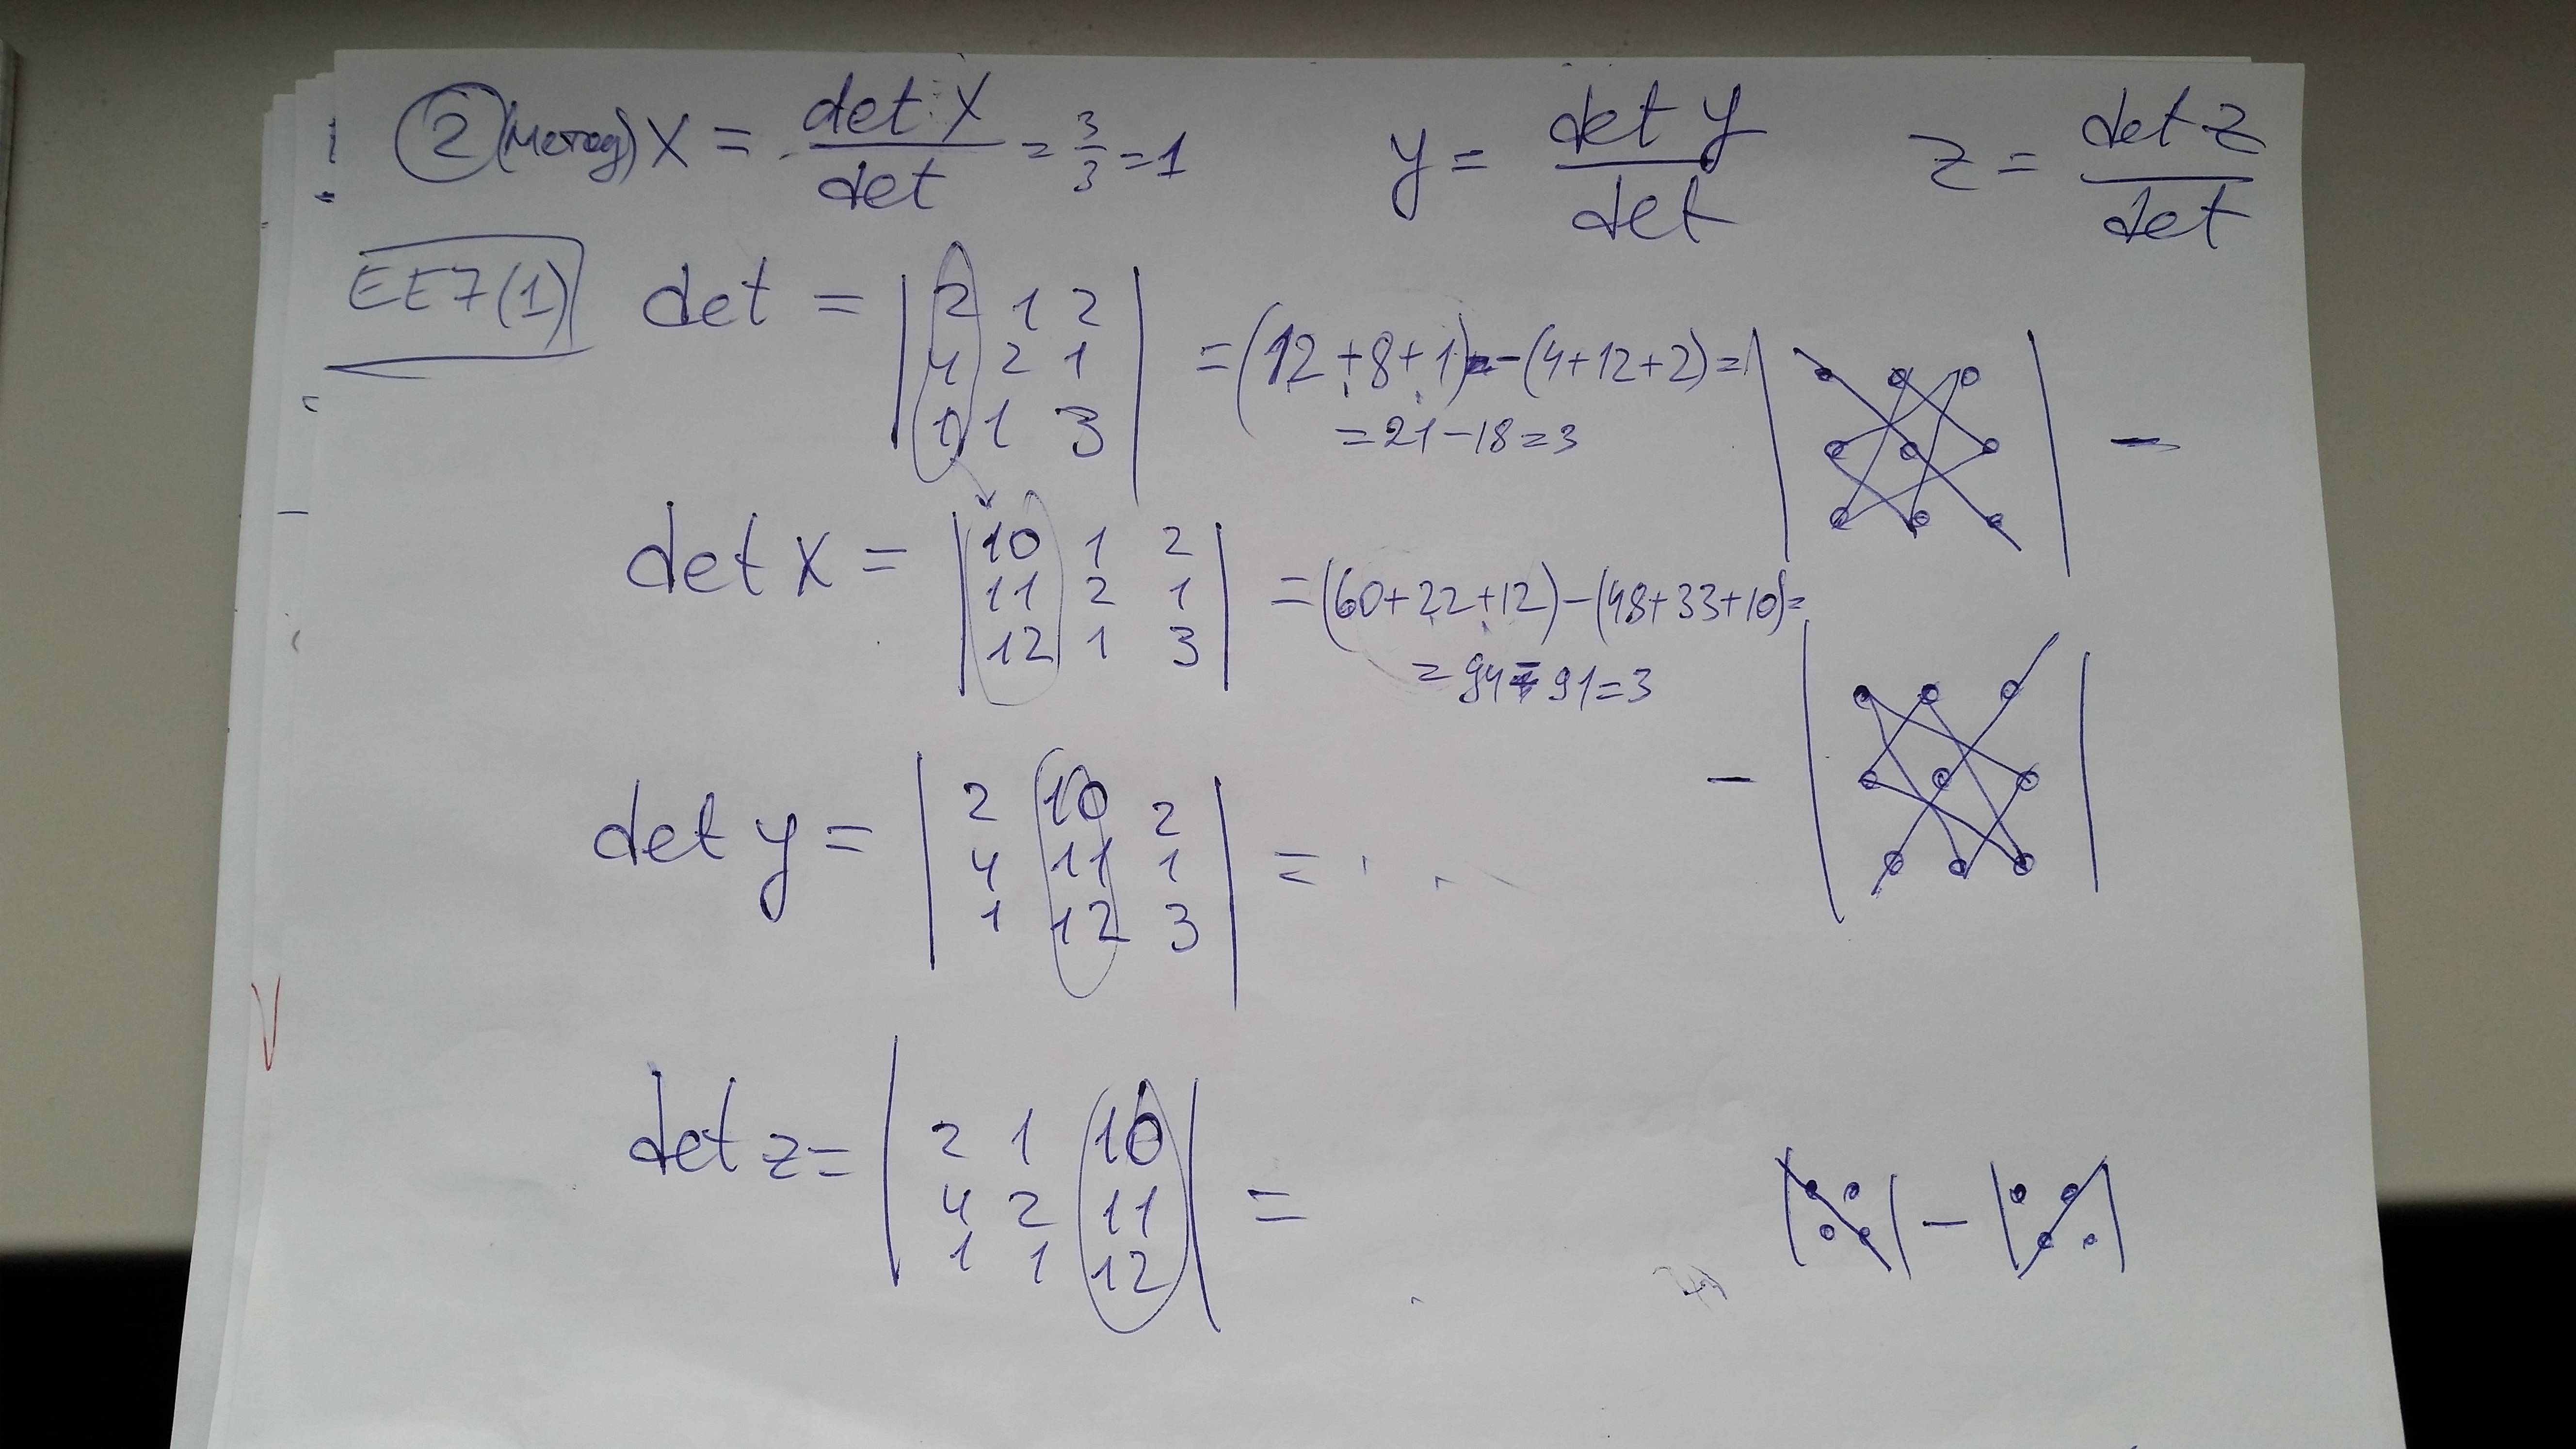 ! ② (метод) x = det x / det = 3/3 = 1    y = det y / det    z = det z / det
EE7(1)
det = | 2 1 2 | = (12 + 8 + 1) - (4 + 12 + 2) =
| 4 2 1 |
| 1 1 3 | = 21 - 18 = 3
det x = | 10 1 2 | = (60 + 22 + 12) - (48 + 33 + 10) =
| 11 2 1 |
| 12 1 3 | = 94 - 91 = 3
det y = | 2 10 2 | = . . .
| 4 11 1 |
| 1 12 3 |
det z = | 2 1 10 | =
| 4 2 11 |
| 1 1 12 |